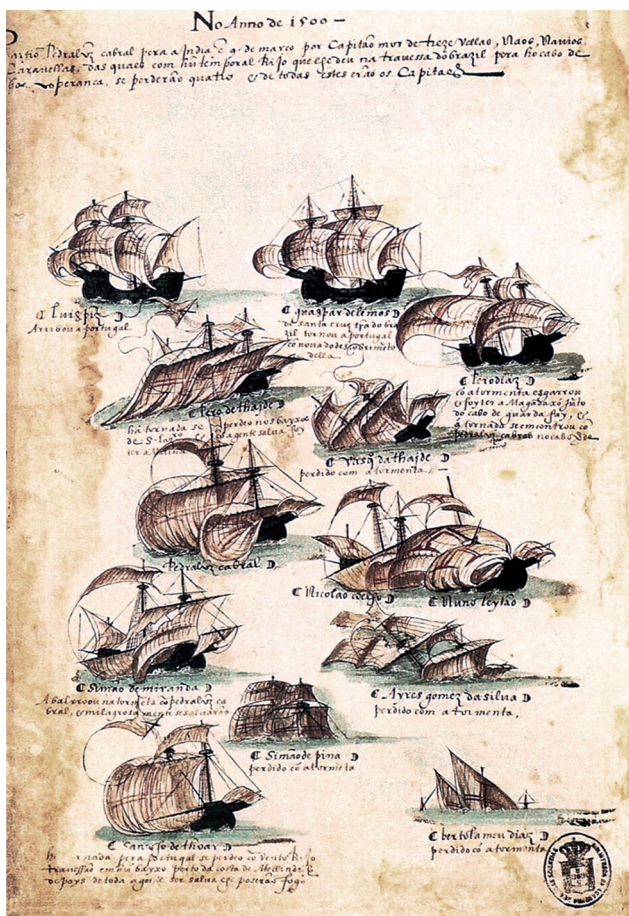 No Anno de 1500 —
Partio Pedralvz cabral pera a India e 9 de março por Capitão mor de treze vellas, Naos, Navios,
Caravellas, das quaes com hũ temporal Rijo que lhe deu na travessa do brazil pera ho cabo de
boa esperança, se perderão quatro e de todas estes erão os Capitães
Luis piz
Arribou a portugal
guaspar de lemos
de santa cruz trã do bra
zil tornou a portugal
cõ nova do descobrimẽto
della
Pero diaz
cõ a tormenta esgarrou
e foy ter a Magadaxo jũto
do cabo de guarda fuy, e
a tornada se encontrou cõ
pedralvz cabral no cabo
Pero de thaide
ha tornada se perdeo nos bayxos
de S. e a gente salva foy
ter a
Vasq̃ da thaide
perdido com a tormenta
Pedralvz cabral
Nicolao coelho
Nuno leytão
Simão de miranda
Abalrroou na tormẽta cõ pedralvz ca
bral, e milagrosamente se salvarão
Ayres gomez da silva
perdido com a tormenta,
Simão de pina
perdido cõ a tormẽta
Sancho de thoar
tornada pera portugal se perdeo cõ vento Rijo
travessão em hũ bayxo perto da costa de
depoys de toda a gẽte ser salva lhe poserão fogo
bertolameu diaz
perdido cõ a tormenta